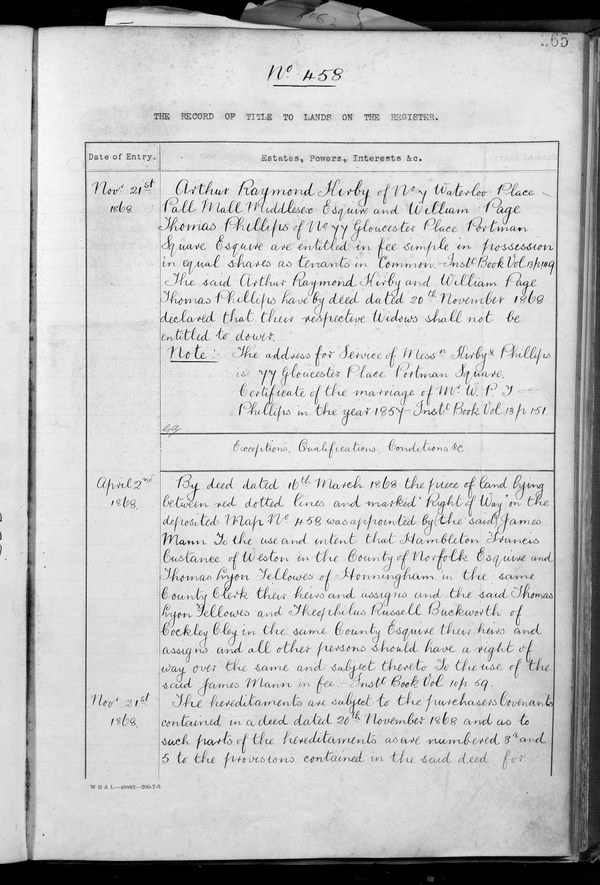 65
No 458
THE RECORD OF TITLE TO LANDS ON THE REGISTER.
Date of Entry.
Estates, Powers, Interests &c.
Novr 21st
1868
Arthur Raymond Kirby of No 7 Waterloo Place
Pall Mall Middlesex Esquire and William Page
Thomas Phillips of No 77 Gloucester Place Portman
Square Esquire are entitled in fee simple in possession
in equal shares as tenants in Common.— Instt Book Vol 13 p 149
The said Arthur Raymond Kirby and William Page
Thomas Phillips have by deed dated 20th November 1868
declared that their respective Widows shall not be
entitled to dower.
Note: The address for Service of Messrs Kirby & Phillips
is 77 Gloucester Place Portman Square.
Certificate of the marriage of Mr W. P. T —
Phillips in the year 1857 — Instt Book Vol 13 p 151.
Exceptions, Qualifications, Conditions &c
April 2nd
1868.
By deed dated 16th March 1868 the piece of land lying
between red dotted lines and marked "Right of Way" on the
deposited Map No 458 was appointed by the said James
Mann To the use and intent that Hambleton Francis
Custance of Weston in the County of Norfolk Esquire and
Thomas Lyon Fellowes of Honningham in the same
County Clerk their heirs and assigns and the said Thomas
Lyon Fellowes and Theophilus Russell Buckworth of
Cockley Cley in the same County Esquire their heirs and
assigns and all other persons should have a right of
way over the same and subject thereto To the use of the
said James Mann in fee.— Instt Book Vol 10 p 59.
Novr 21st
1868.
The hereditaments are subject to the purchasers Covenants
contained in a deed dated 20th November 1868 and as to
such parts of the hereditaments as are numbered 3a and
5 to the provisions contained in the said deed for
W B & L—18882—200-7-6